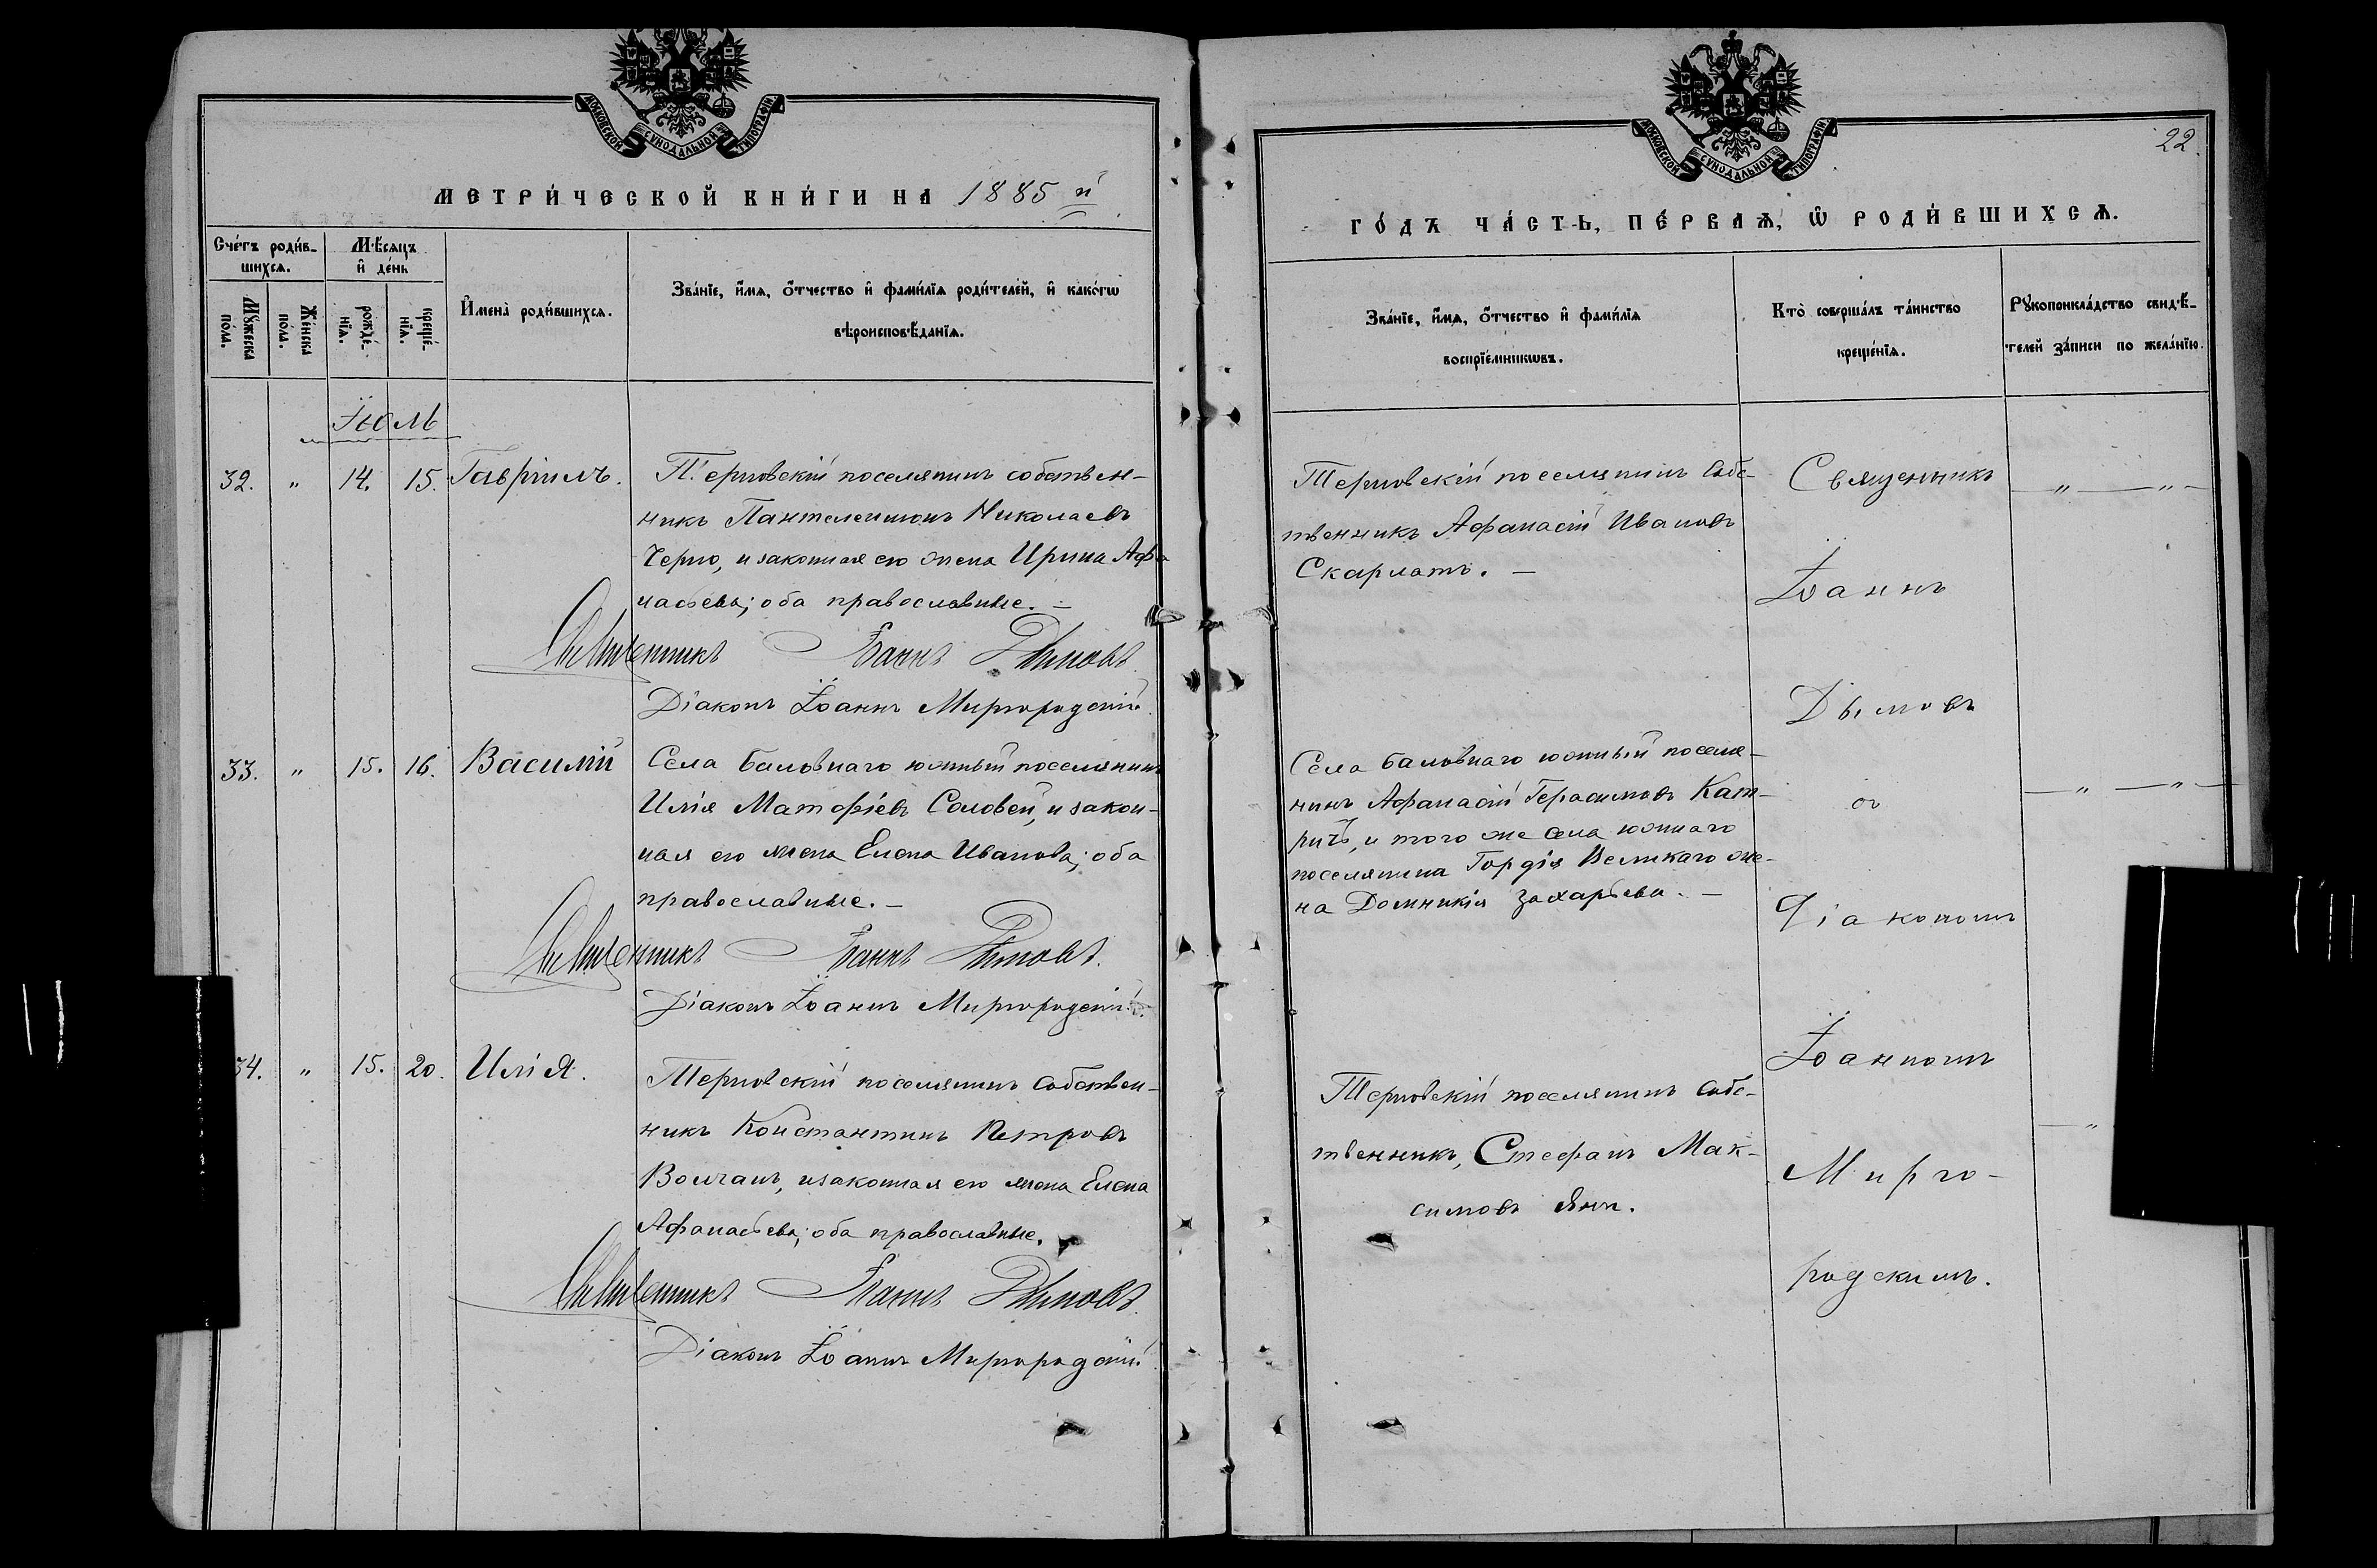 МОСКОВСКОЙ СѴНОДАЛЬНОЙ ТИПОГРАФІИ
МЕТРИ́ЧЕСКОЙ КНИ́ГИ НА 1885 й
Сче́тъ роди́в-
шихсѧ.
Мѣ́сѧцъ
и҆ де́нь
Мꙋ́жеска
по́ла.
Же́нска
по́ла.
рожде́-
нїѧ.
креще́-
нїѧ.
И҆мена̀ роди́вшихсѧ.
Зва́нїе, и҆́мѧ, ѻ҆́тчество и҆ фами́лїѧ роди́телей, и҆ како́гѡ
вѣроисповѣ́данїѧ.
Іюль
32. " 14. 15. Гавріилъ.
Терновскій поселянинъ собствен-
никъ Пантелеимонъ Николаевъ
Черно, и законная его жена Ирина Афа
насьева; оба православные. —
Священникъ Іоаннъ Дымовъ.
Діаконъ Іоаннъ Миргородскій.
33. " 15. 16. Василій
Села Баловнаго южный поселянинъ
Илія Матфіевъ Соловей, и закон-
ная его жена Елена Иванова; оба
православные. —
Священникъ Іоаннъ Дымовъ.
Діаконъ Іоаннъ Миргородскій.
34. " 15. 20. Илія.
Терновскій поселянинъ собствен-
никъ Константинъ Петровъ
Волчанъ, и законная его жена Елена
Афанасьева; оба православные.
Священникъ Іоаннъ Дымовъ.
Діаконъ Іоаннъ Миргородскій.
МОСКОВСКОЙ СѴНОДАЛЬНОЙ ТИПОГРАФІИ
22.
ГО́ДЪ ЧА́СТЬ, ПЕ́РВАѦ, Ѡ҆ РОДИ́ВШИХСѦ.
Зва́нїе, и҆́мѧ, ѻ҆́тчество и҆ фами́лїѧ
воспрїе́мникѡвъ.
Кто̀ соверша́лъ та́инство
креще́нїѧ.
Рꙋкоприкла́дство свидѣ́-
телей за́писи по жела́нїю.
Терновскій поселянинъ собс-
твенникъ Афанасій Ивановъ
Скарлатъ. —
Села Баловнаго южный поселя-
нинъ Афанасій Герасимовъ Кат-
ричъ, и того же села южнаго
поселянина Гордія Великаго же-
на Домникія Захарьева. —
Терновскій поселянинъ собс-
твенникъ, Стефанъ Мак-
симовъ Яни.
Священникъ
Іоаннъ
Дымовъ
съ
Діакономъ
Іоанномъ
Мирго-
родскимъ.
— " — " —
— " — " —
— "